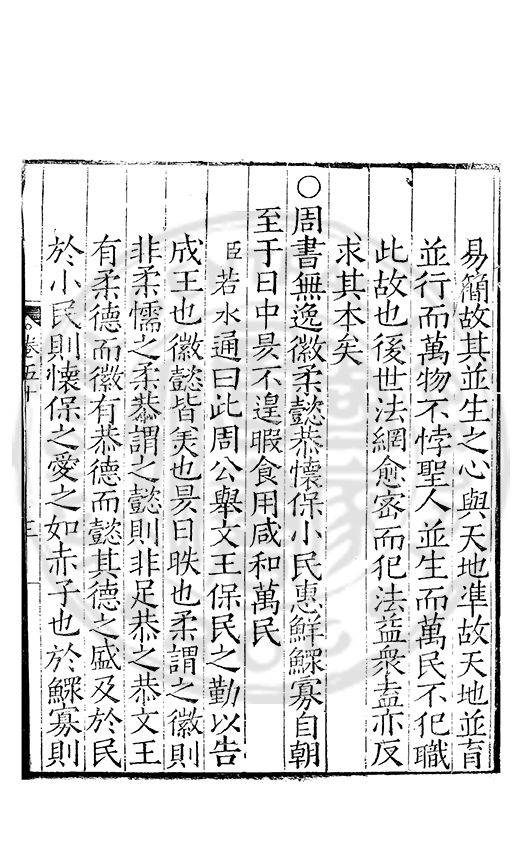 易簡故其並生之心與天地凖故天地並育
並行而萬物不悖聖人並生而萬民不犯職
此故也後世法網愈密而犯法益衆盍亦反
求其本矣
○周書無逸徽柔懿恭懷保小民惠鮮鰥寡自朝
至于日中昃不遑暇食用咸和萬民
臣若水通曰此周公舉文王保民之勤以告
成王也徽懿皆美也昃日昳也柔謂之徽則
非柔懦之柔恭謂之懿則非足恭之恭文王
有柔德而徽有恭德而懿其德之盛及於民
於小民則懷保之愛之如赤子也於鰥寡則
卷五十
三